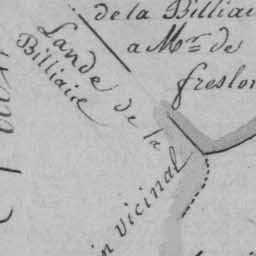 de la Billiaie
a Mr. de
freslon
Lande de la
Billiaie
vicinal